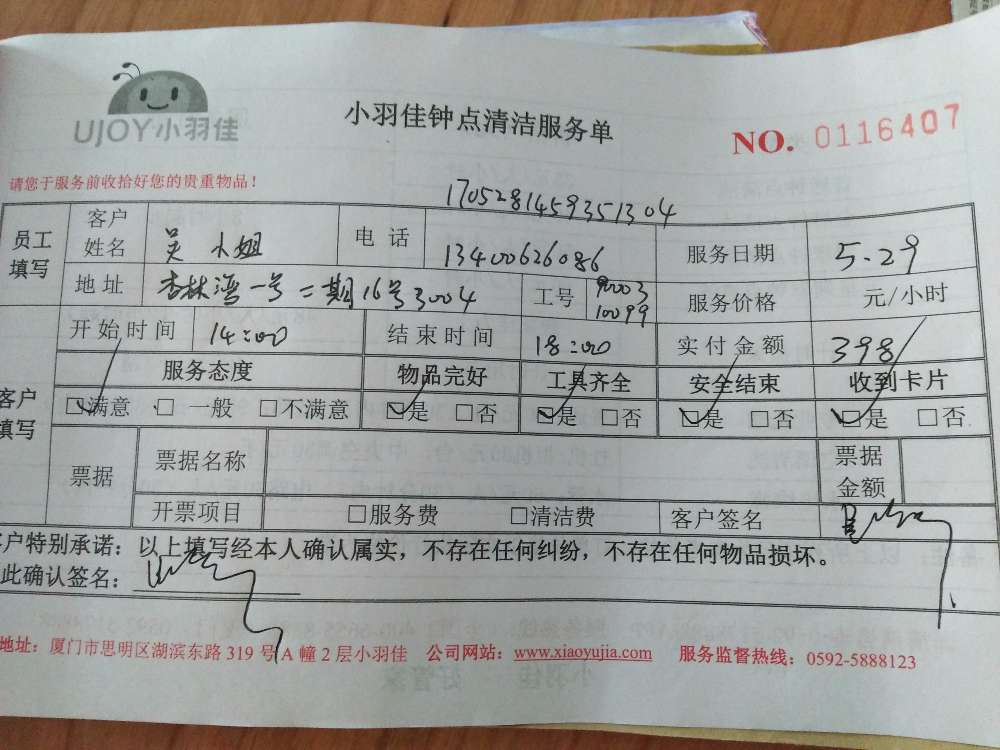 UJOY小羽佳
小羽佳钟点清洁服务单
NO. 0116407
请您于服务前收拾好您的贵重物品！
1705281459351304
员工填写 客户姓名 吴小姐 电话 13400626086 服务日期 5.29
地址 杏林湾一号二期16号3004 工号 90003 10099 服务价格 元/小时
开始时间 14:00 结束时间 18:00 实付金额 398/
客户填写 服务态度 物品完好 工具齐全 安全结束 收到卡片
☑满意 □一般 □不满意 ☑是 □否 ☑是 □否 ☑是 □否 ☑是 □否
票据 票据名称 票据金额
开票项目 □服务费 □清洁费 客户签名
客户特别承诺：以上填写经本人确认属实，不存在任何纠纷，不存在任何物品损坏。
此确认签名：
地址：厦门市思明区湖滨东路 319 号 A 幢 2 层小羽佳 公司网站：www.xiaoyujia.com 服务监督热线：0592-5888123